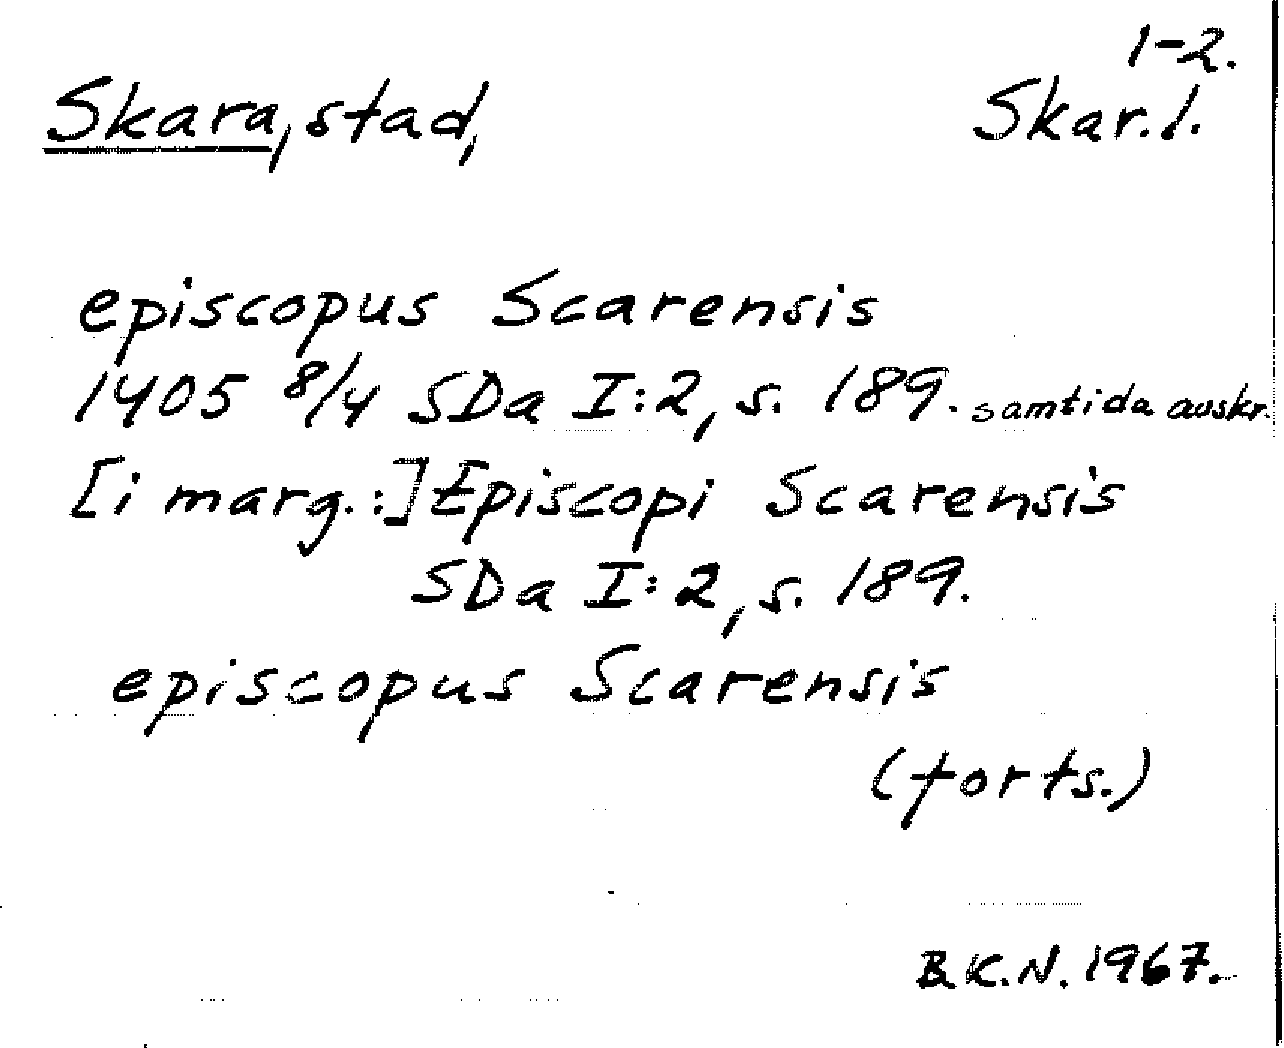 1-2.
Skara, stad, Skar. l.
episcopus Scarensis
1405 8/4 SDa I:2, s. 189. samtida avskr.
[i marg.:] Episcopi Scarensis
SDa I:2, s. 189.
episcopus Scarensis
(forts.)
B.K.N. 1967.